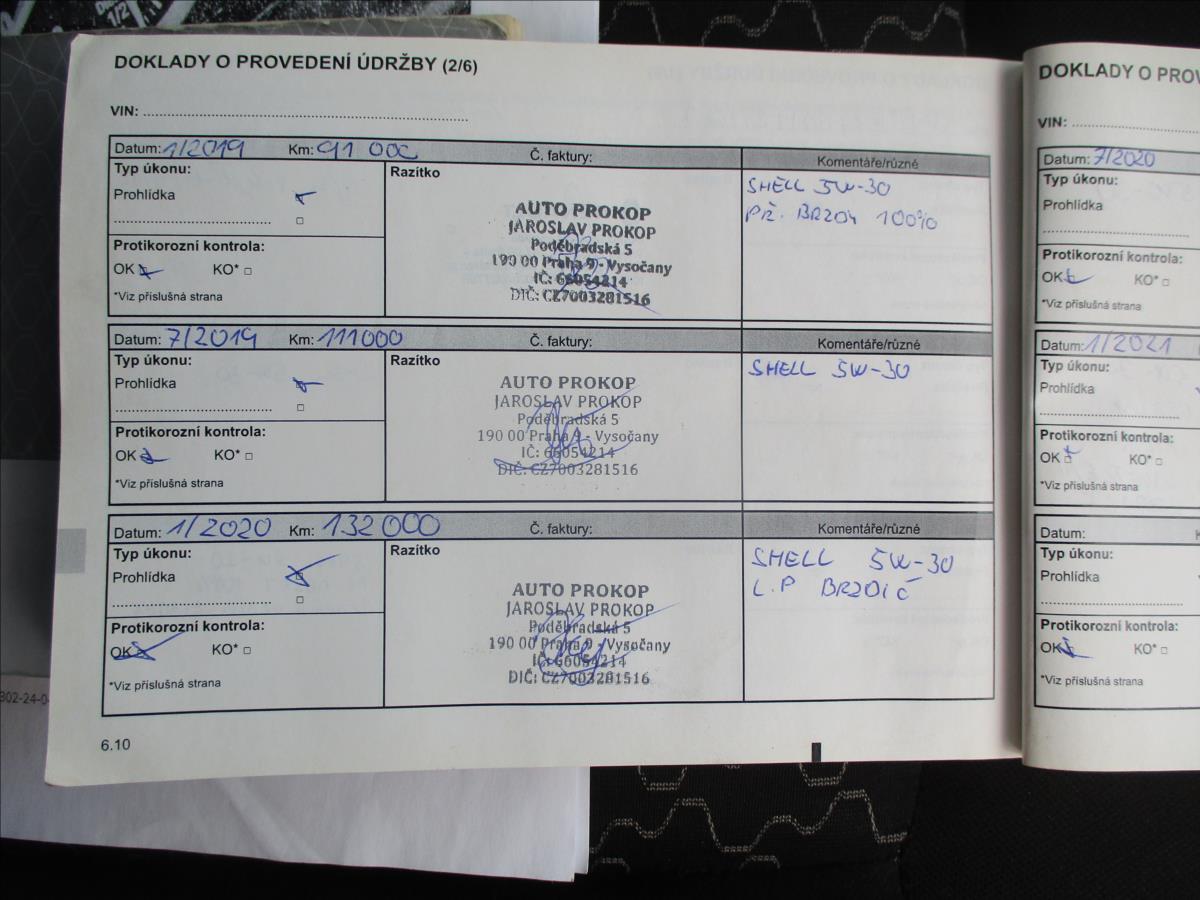 DOKLADY O PROVEDENÍ ÚDRŽBY (2/6)
VIN:
Datum: 1/2019 Km: 91 000 Č. faktury: Komentáře/různé
Typ úkonu:
Prohlídka
Protikorozní kontrola:
OK KO*
*Viz příslušná strana
Razítko
AUTO PROKOP
JAROSLAV PROKOP
Poděbradská 5
190 00 Praha 9 - Vysočany
IČ: 66054214
DIČ: CZ7003281516
SHELL 5W-30
PŽ. BRZDY 100%
Datum: 7/2019 Km: 111000 Č. faktury: Komentáře/různé
Typ úkonu:
Prohlídka
Protikorozní kontrola:
OK KO*
*Viz příslušná strana
Razítko
AUTO PROKOP
JAROSLAV PROKOP
Poděbradská 5
190 00 Praha 9 - Vysočany
IČ: 66054214
DIČ: CZ7003281516
SHELL 5W-30
Datum: 1/2020 Km: 132 000 Č. faktury: Komentáře/různé
Typ úkonu:
Prohlídka
Protikorozní kontrola:
OK KO*
*Viz příslušná strana
Razítko
AUTO PROKOP
JAROSLAV PROKOP
Poděbradská 5
190 00 Praha 9 - Vysočany
IČ: 66054214
DIČ: CZ7003281516
SHELL 5W-30
L.P BRZDIČ
6.10
DOKLADY O PROV
VIN:
Datum: 7/2020
Typ úkonu:
Prohlídka
Protikorozní kontrola:
OK KO*
*Viz příslušná strana
Datum: 1/2021
Typ úkonu:
Prohlídka
Protikorozní kontrola:
OK KO*
*Viz příslušná strana
Datum:
Typ úkonu:
Prohlídka
Protikorozní kontrola:
OK KO*
*Viz příslušná strana
302-24-0
1/2